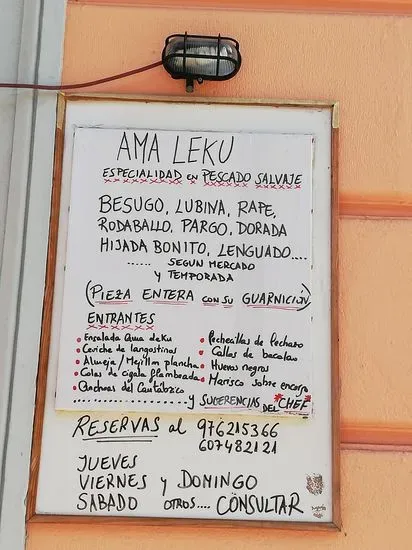 AMA LEKU
ESPECIALIDAD en PESCADO SALVAJE
BESUGO, LUBINA, RAPE,
RODABALLO, PARGO, DORADA
HIJADA BONITO, LENGUADO....
...... SEGUN MERCADO
Y TEMPORADA
(PIEZA ENTERA CON SU GUARNICION)
ENTRANTES
• Ensalada Ama Leku
• Ceviche de langostinos
• Almeja / Mejillon plancha
• Colas de cigala flambeada
• Anchoas del Cantábrico
• Pochecillas de Pochazo
• Callos de bacalao
• Huevos negros
• Marisco sobre encargo
........... y SUGERENCIAS DEL CHEF
RESERVAS al 976215366
607482121
JUEVES
VIERNES y DOMINGO
SABADO OTROS.... CONSULTAR